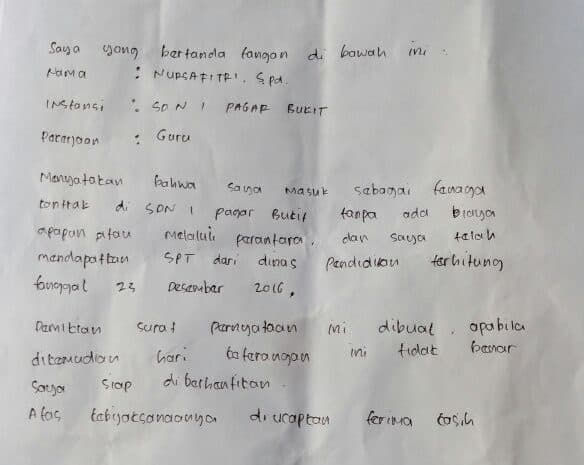 Saya yang bertanda tangan di bawah ini :
Nama : NURSAFITRI. S.pd.
INstansi : SDN 1 PAGAR BUKIT
Pekerjaan : Guru
Menyatakan bahwa saya masuk sebagai tenaga
kontrak di SDN 1 pagar Bukit tanpa ada biaya
apapan atau melaluli perantara, dan saya telah
mendapatkan SPT dari dinas Pendidikan terhitung
tanggal 23 Desember 2016,
Demikian surat pernyataan ini dibuat, apabila
dikemudian hari keterangan ini tidak benar
saya siap diberhentikan.
Atas kebijaksanaanya diucapkan terima kasih